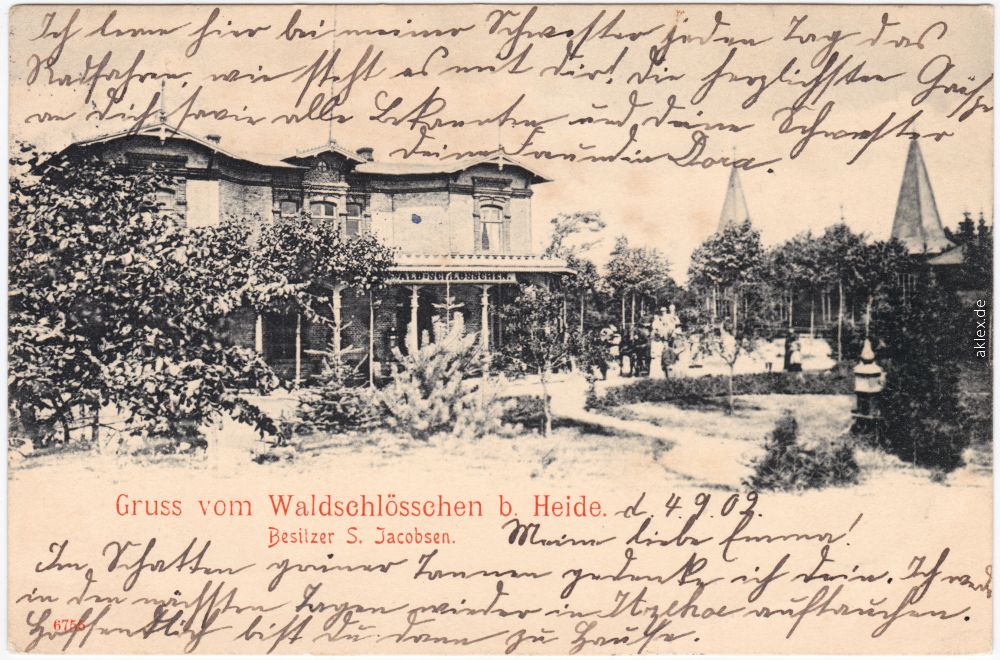 Ich lerne hier bei meiner Schwester jeden Tag das
Radfahren, wie steht es mit dir? die herzlichsten Grüsse
an dich sowie alle Bekannten und deine Schwester
deine Freundin Dora.
WALD-SCHLÖSSCHEN.
aklex.de
Gruss vom Waldschlösschen b. Heide. d. 4.9.02.
Besitzer S. Jacobsen.
Meine liebe Emma!
Im Schatten grüner Tannen gedenke ich dein. Ich werde
in den nächsten Tagen wieder in Itzehoe auftauchen.
6755
Hoffentlich bist du dann zu Hause.